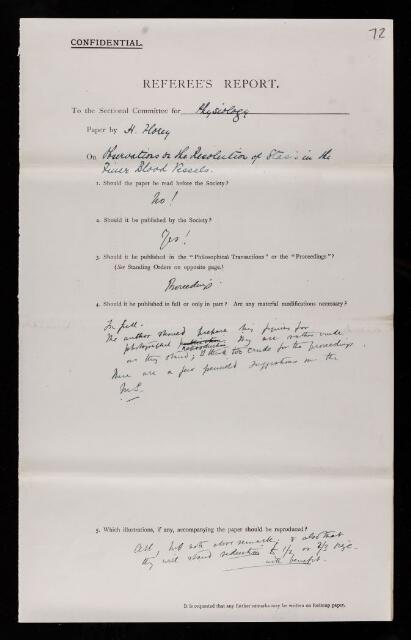 72
CONFIDENTIAL.
REFEREE'S REPORT.
To the Sectional Committee for Physiology
Paper by H. Florey
On Observations on the Resolution of Stasis in the
Finer Blood Vessels.
1. Should the paper be read before the Society?
No!
2. Should it be published by the Society?
Yes!
3. Should it be published in the "Philosophical Transactions" or the "Proceedings"?
(See Standing Orders on opposite page.)
Proceedings
4. Should it be published in full or only in part? Are any material modifications necessary?
In full.
The author should prepare his figures for
photographic reproduction. They are rather crude
as they stand; I think too crude for the proceedings.
There are a few pencilled suggestions on the
MS.
5. Which illustrations, if any, accompanying the paper should be reproduced?
All, but note above remark, & also that
they will stand reduction to 1/2 or 2/3 size
with benefit.
It is requested that any further remarks may be written on foolscap paper.